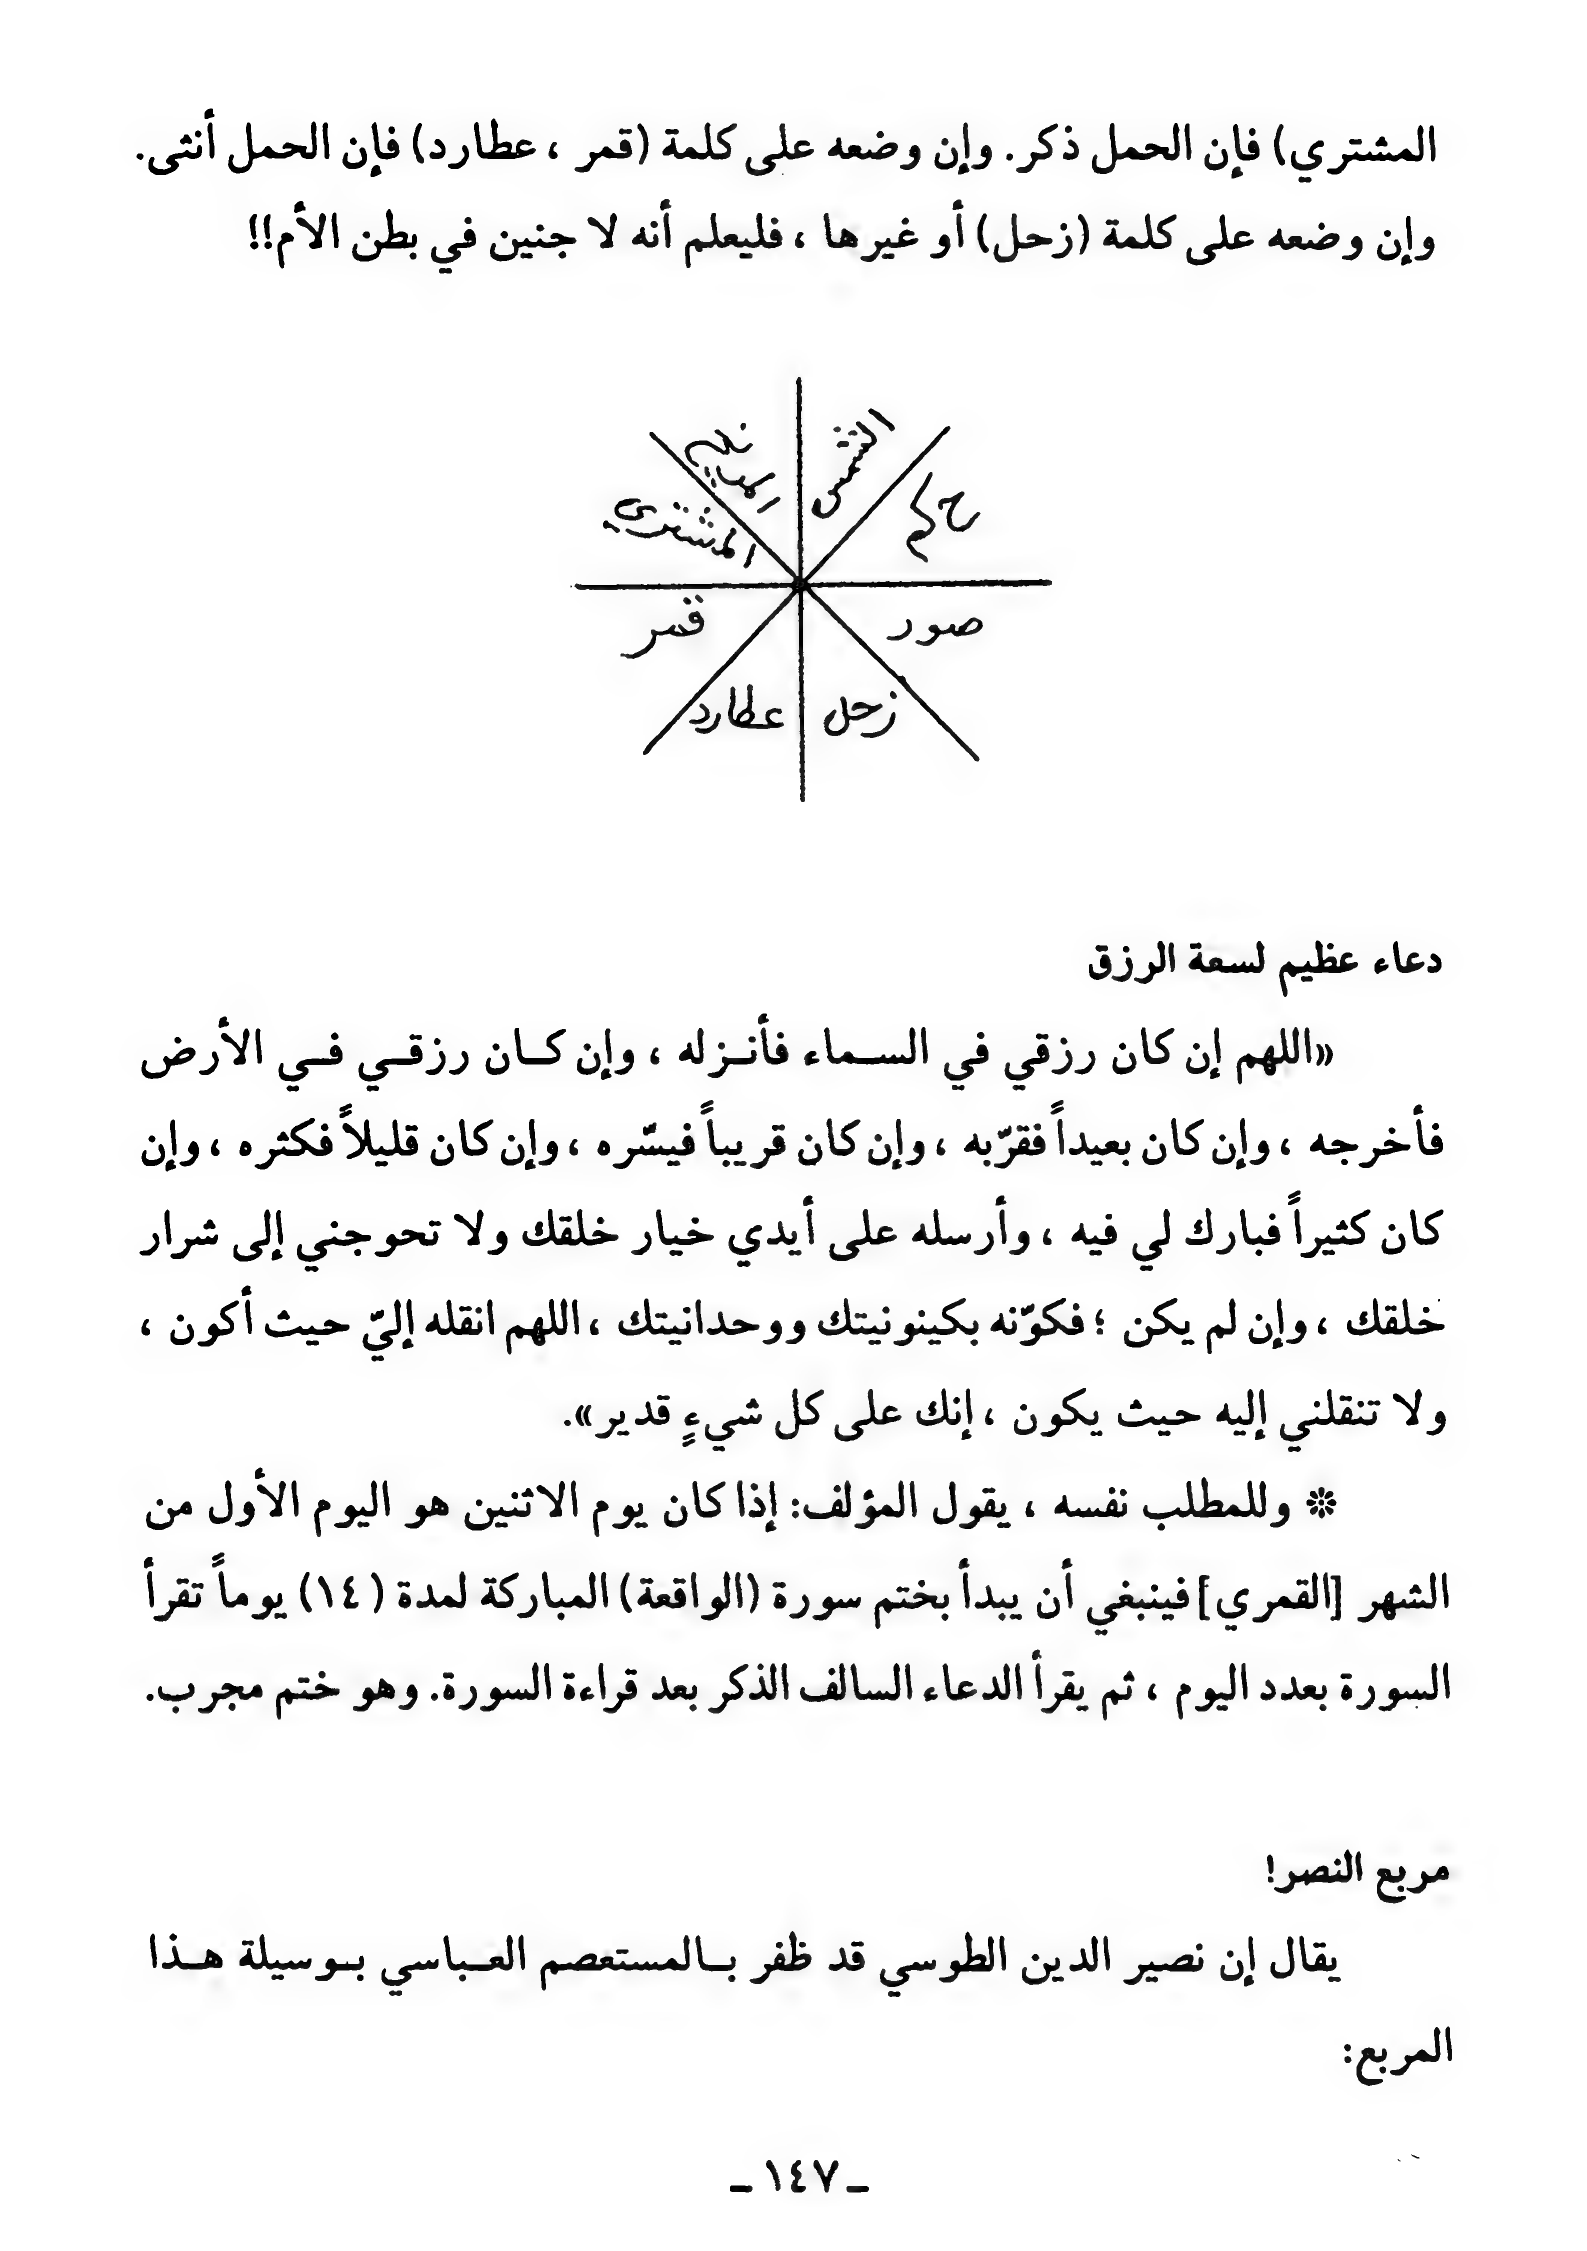 المشتري) فإن الحمل ذكر. وإن وضعه على كلمة (قمر ، عطارد) فإن الحمل أنثى.
وإن وضعه على كلمة (زحل) أو غيرها ، فليعلم أنه لا جنين في بطن الأم!!
الشمس
المريخ
المشتري
قمر
صور
عطارد
زحل
دعاء عظيم لسعة الرزق
«اللهم إن كان رزقي في السماء فأنزله ، وإن كان رزقي في الأرض
فأخرجه ، وإن كان بعيداً فقرّبه ، وإن كان قريباً فيسّره ، وإن كان قليلاً فكثره ، وإن
كان كثيراً فبارك لي فيه ، وأرسله على أيدي خيار خلقك ولا تحوجني إلى شرار
خلقك ، وإن لم يكن ؛ فكوّنه بكينونيتك ووحدانيتك ، اللهم انقله إليّ حيث أكون ،
ولا تنقلني إليه حيث يكون ، إنك على كل شيءٍ قدير».
❊ وللمطلب نفسه ، يقول المؤلف: إذا كان يوم الاثنين هو اليوم الأول من
الشهر [القمري] فينبغي أن يبدأ بختم سورة (الواقعة) المباركة لمدة (١٤) يوماً تقرأ
السورة بعدد اليوم ، ثم يقرأ الدعاء السالف الذكر بعد قراءة السورة. وهو ختم مجرب.
مربع النصر!
يقال إن نصير الدين الطوسي قد ظفر بالمستعصم العباسي بوسيلة هذا
المربع:
ـ ١٤٧ ـ